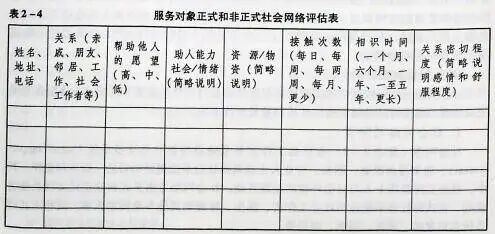 表2-4 服务对象正式和非正式社会网络评估表
姓名、
地址、
电话
关系（亲
戚、朋友、
邻居、工
作、社会
工作者等）
帮助他人
的愿望
（高、中、
低）
助人能力
社会/情绪
（简略说明）
资源/物
资（简略
说明）
接触次数
（每日、每
周、每两
周、每月、
更少）
相识时间
（一个月、
六个月、一
年、一至五
年、更长）
关系密切程
度（简略说
明感情和舒
服程度）